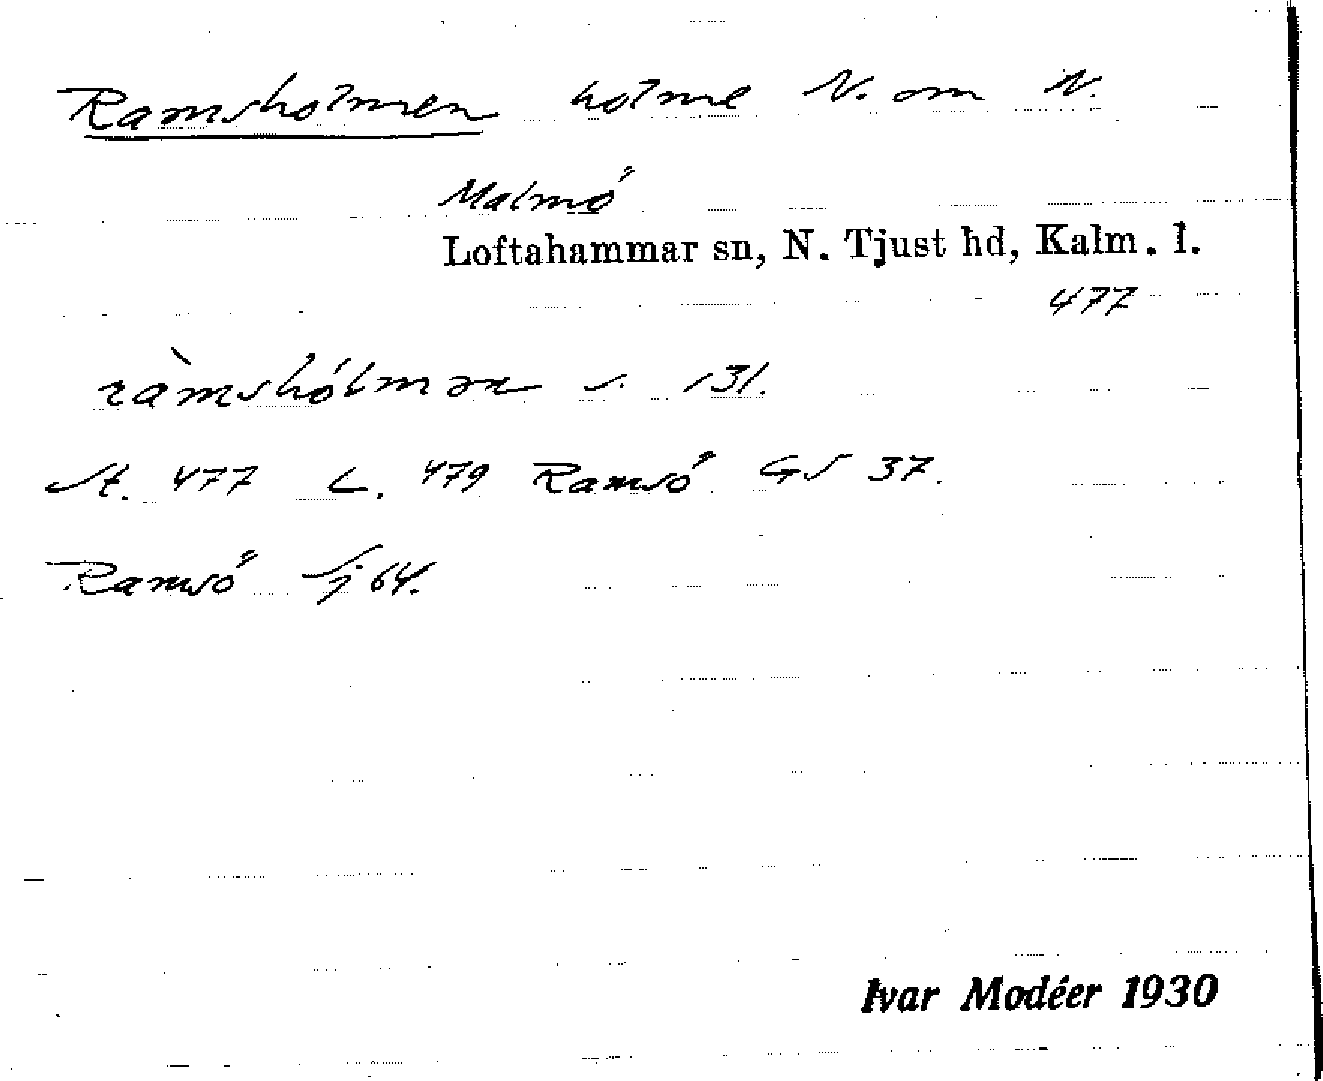 Ramsholmen holme N. om N.
Malmö
Loftahammar sn, N. Tjust hd, Kalm. l.
477
ràmshólmən s. 131.
St. 477 L. 479 Ramsö GS 37.
Ramsö Sj 64.
Ivar Modéer 1930